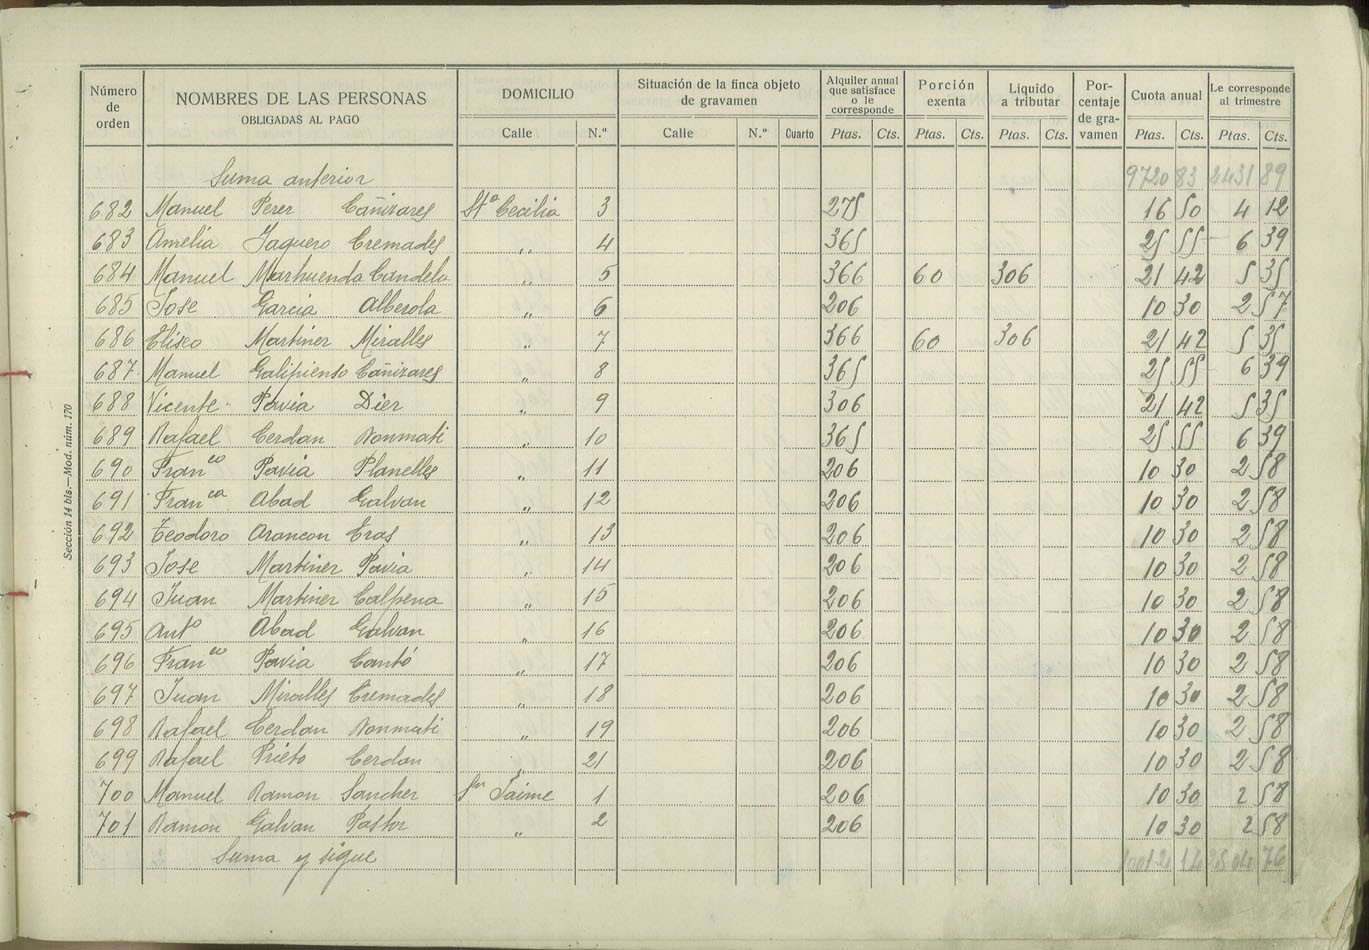 Número de orden NOMBRES DE LAS PERSONAS OBLIGADAS AL PAGO DOMICILIO Situación de la finca objeto de gravamen Alquiler anual que satisface o le corresponde Porción exenta Líquido a tributar Por-centaje de gra-vamen Cuota anual Le corresponde al trimestre
Calle N.º Calle N.º Cuarto Ptas. Cts. Ptas. Cts. Ptas. Cts. Ptas. Cts. Ptas. Cts.
Suma anterior 9720 83 2431 89
682 Manuel Perez Cañizares Sta Cecilia 3 275 16 50 4 12
683 Amelia Jaquero Cremades ,, 4 365 25 55 6 39
684 Manuel Marhuenda Candela ,, 5 366 60 306 21 42 5 35
685 Jose Garcia Alberola ,, 6 206 10 30 2 57
686 Eliseo Martinez Miralles ,, 7 366 60 306 21 42 5 35
687 Manuel Galipienso Cañizares ,, 8 365 25 55 6 39
688 Vicente Pavia Diez ,, 9 306 21 42 5 35
689 Rafael Cerdan Nonmati ,, 10 365 25 55 6 39
690 Franco Pavia Planelles ,, 11 206 10 30 2 58
691 Franca Abad Galvan ,, 12 206 10 30 2 58
692 Teodoro Arancon Eras ,, 13 206 10 30 2 58
693 Jose Martinez Pavia ,, 14 206 10 30 2 58
694 Juan Martinez Calpena ,, 15 206 10 30 2 58
695 Anto Abad Galvan ,, 16 206 10 30 2 58
696 Franco Pavia Cantó ,, 17 206 10 30 2 58
697 Juan Miralles Cremades ,, 18 206 10 30 2 58
698 Rafael Cerdan Nonmati ,, 19 206 10 30 2 58
699 Rafael Prieto Cerdan ,, 21 206 10 30 2 58
700 Manuel Ramon Sanchez Sn Jaime 1 206 10 30 2 58
701 Ramon Galvan Pastor ,, 2 206 10 30 2 58
Suma y sigue 10012 14 2504 76
Sección 14 bis.—Mod. núm. 170